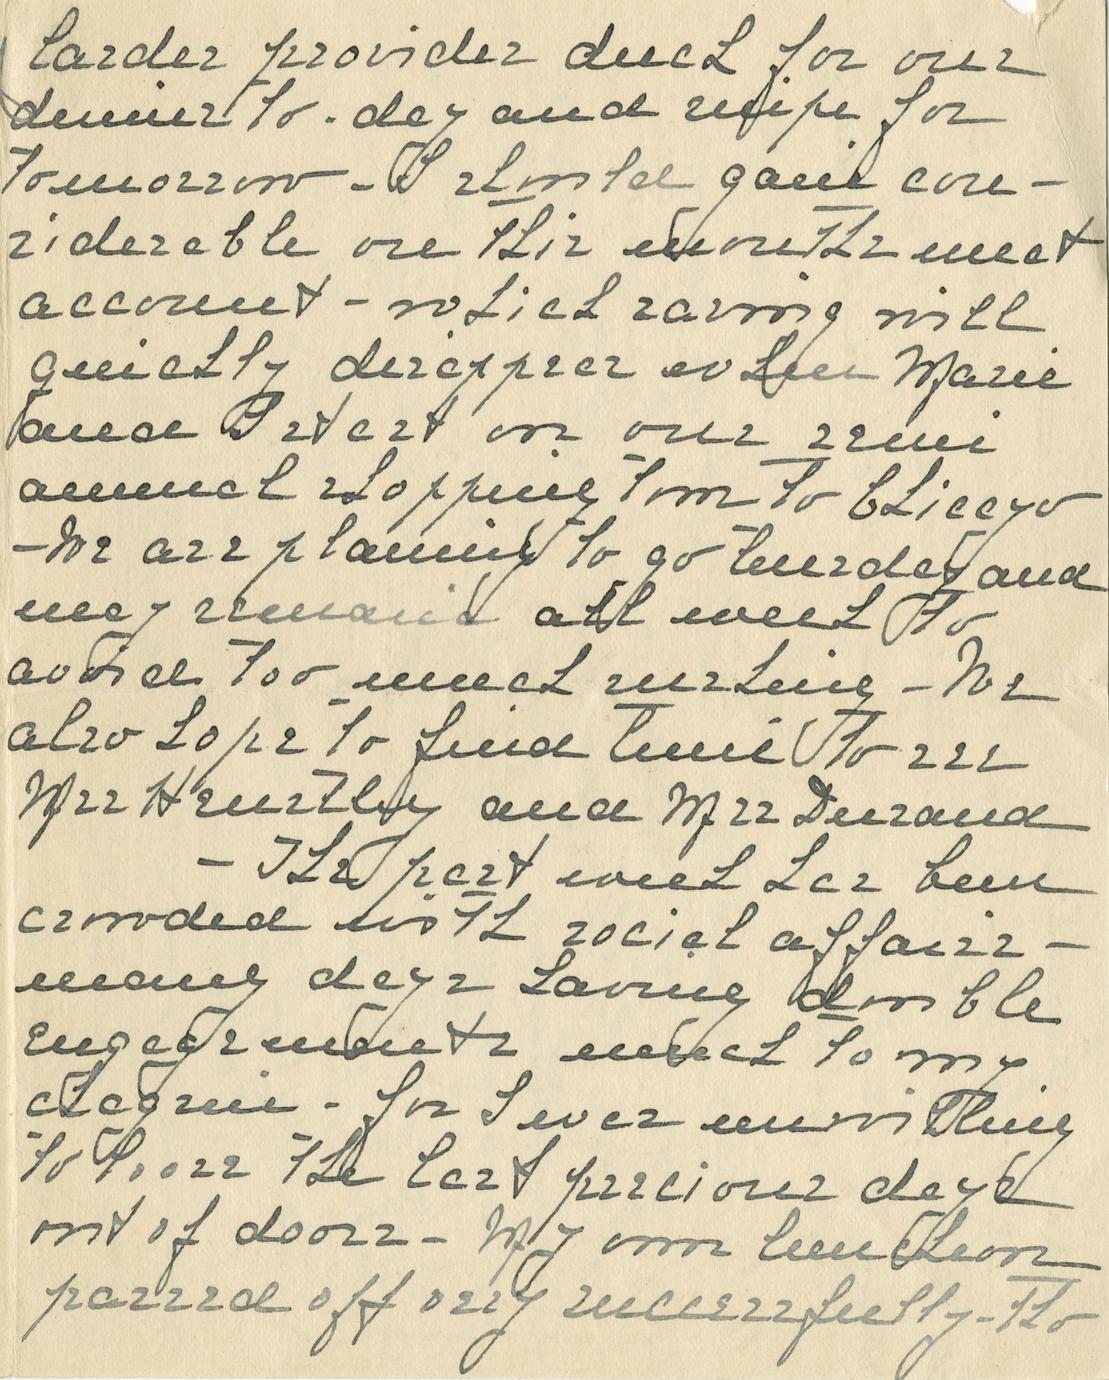 larder provides duck for our
dinner to-day and snipe for
tomorrow - I should gain con-
siderable on this months meat
account - which saving will
quickly disappear when Marie
and I start on our semi
annual shopping tour to Chicago
- We are planning to go Tuesday and
may remain all week to
avoid too much rushing - We
also hope to find time to see
Mrs Huntley and Mrs Durand
- The past week has been
crowded with social affairs -
many days having double
engagements much to my
chagrin - for I was unwilling
to loose the last precious days
out of doors - My own luncheon
passed off very successfully - tho